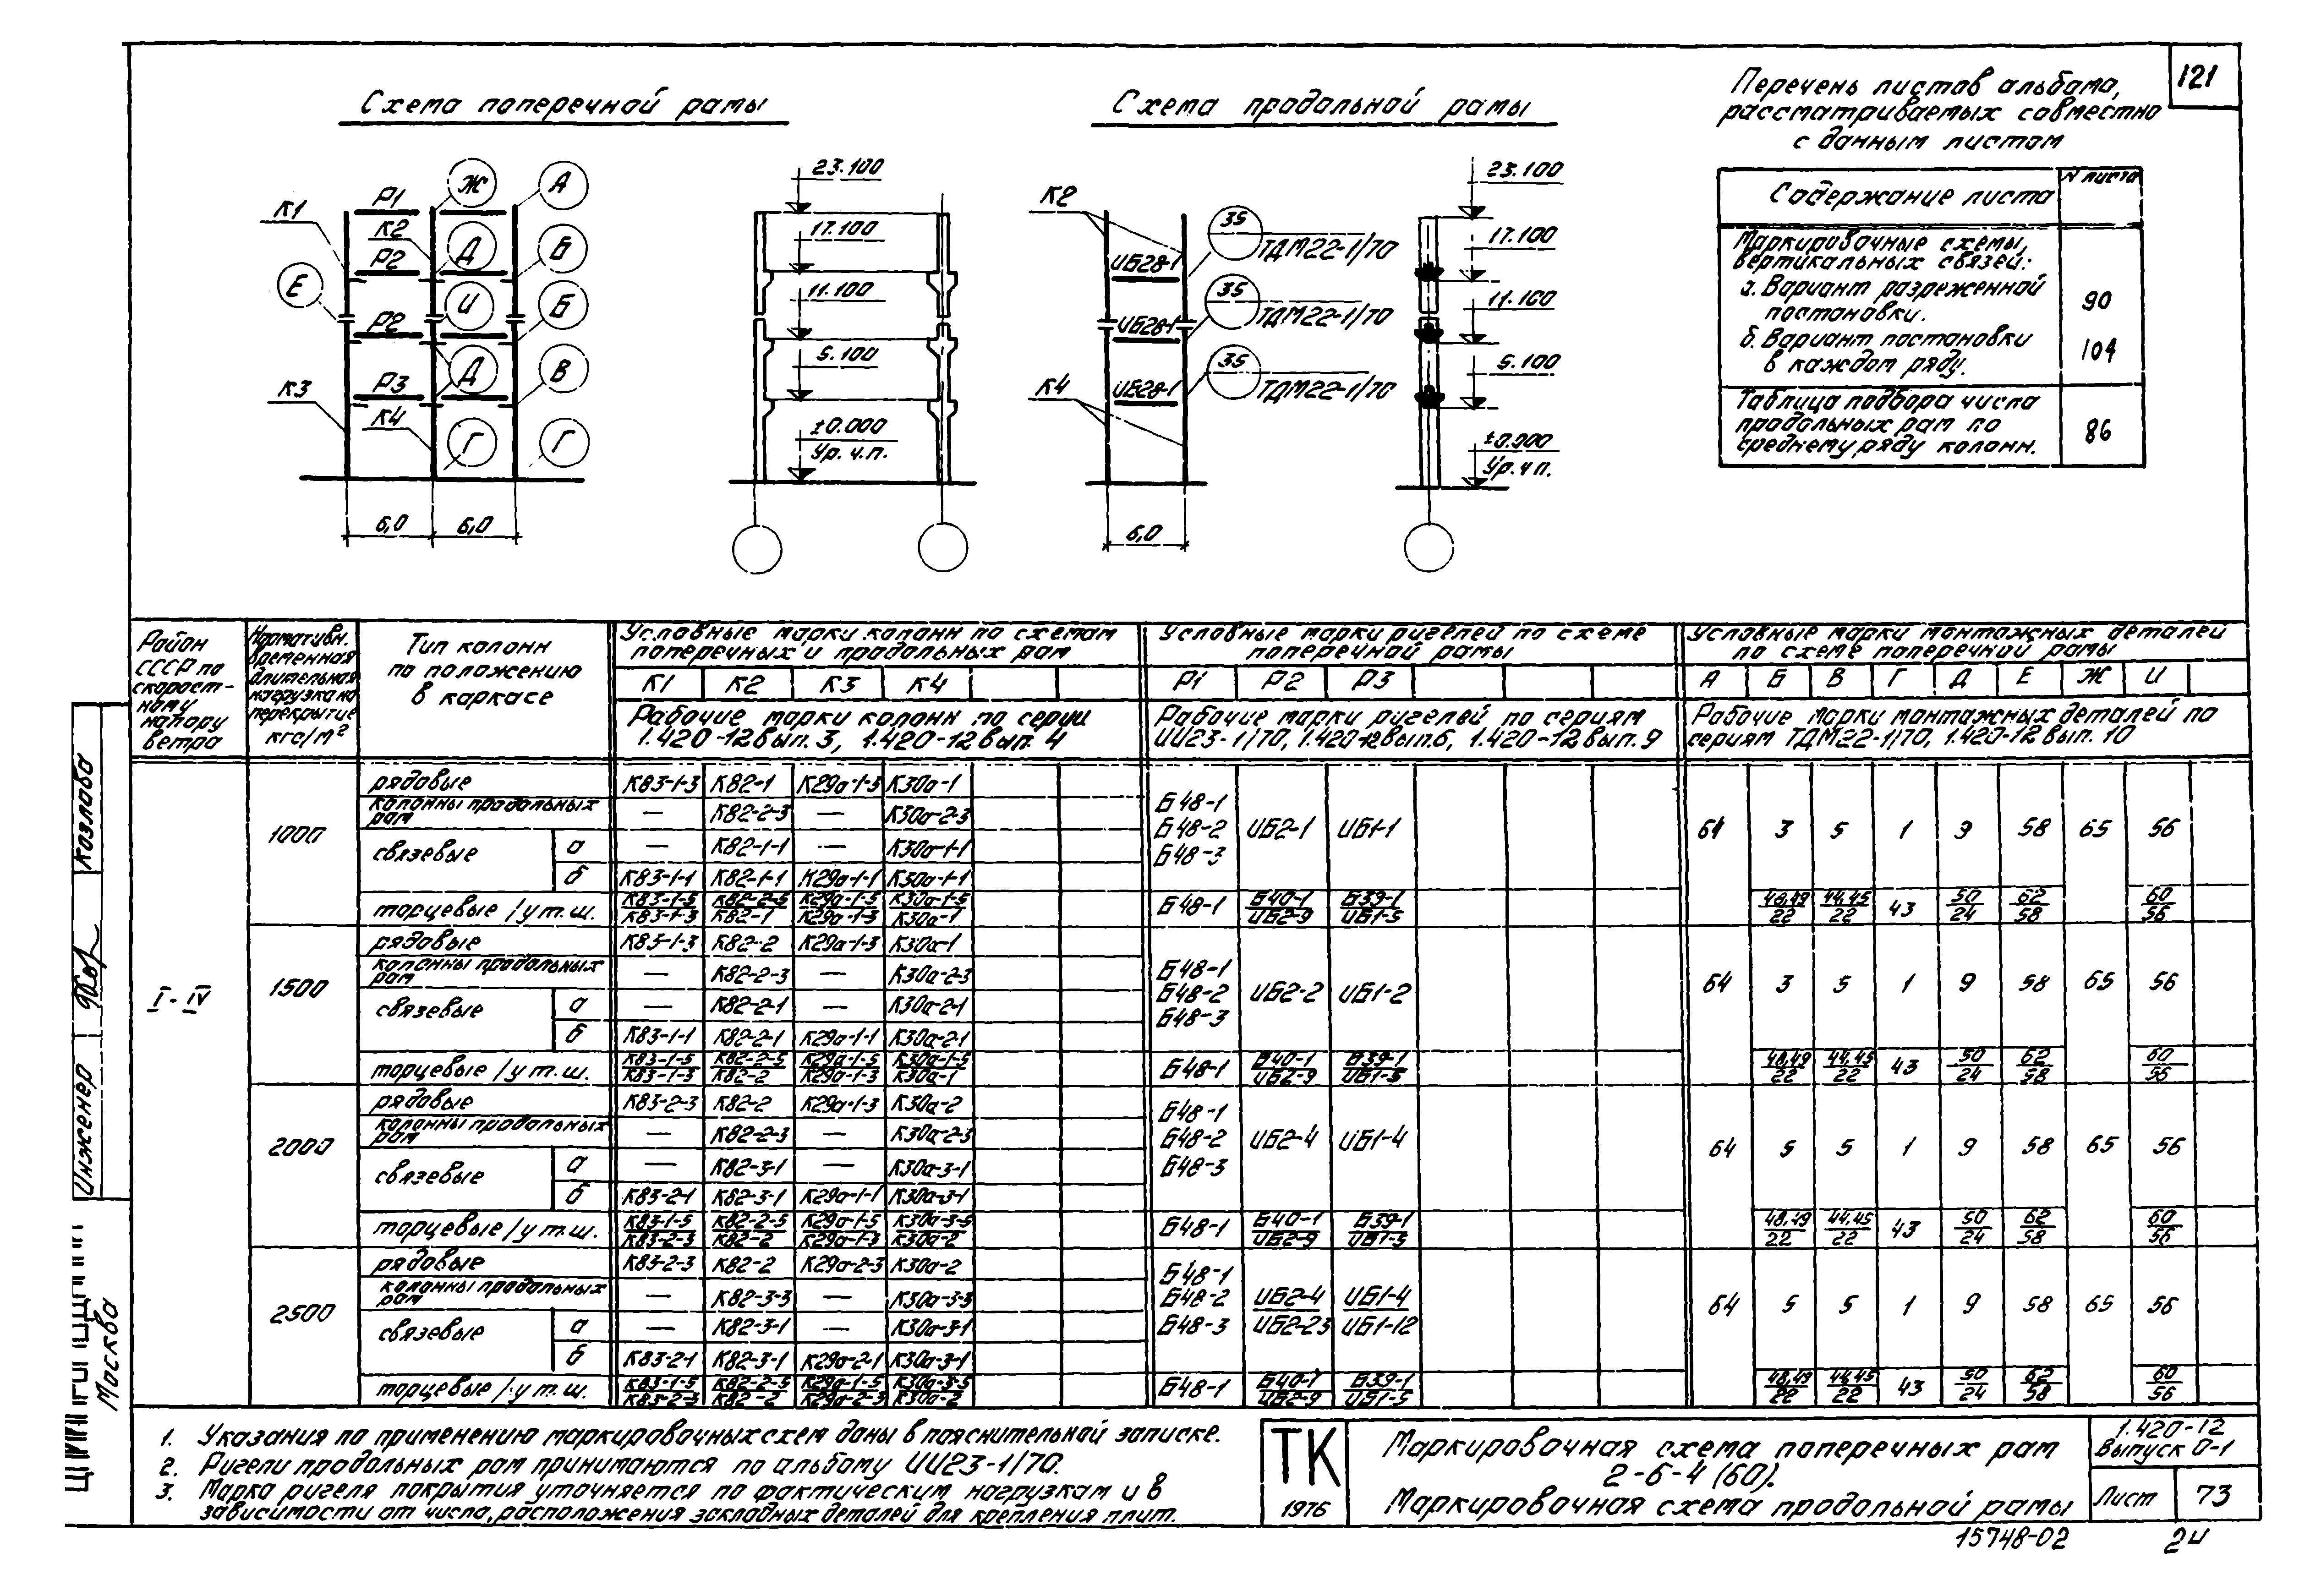 121
Схема поперечной рамы
Схема продольной рамы
Перечень листов альбома,
рассматриваемых совместно
с данным листом
Содержание листа
N листа
Маркировочные схемы,
вертикальных связей:
а. Вариант разреженной
постановки.
90
б. Вариант постановки
в каждом ряду.
104
Таблица подбора числа
продольных рам по
среднему ряду колонн.
86
К1 Р1 Ж А
К2 Д Б
Р2
Е И Б
Р2
К3 Р3 Д В
К4 Г Г
6,0 6,0
23.100
17.100
11.100
5.100
±0.000
Ур. ч.п.
К2
ИБ28-1 35 ТДМ22-1/70
ИБ28-1 35 ТДМ22-1/70
К4 ИБ28-1 35 ТДМ22-1/70
6,0
23.100
17.100
11.100
5.100
±0.000
Ур. ч п.
Район
СССР по
скорост-
ному
напору
ветра
Нормативн.
временная
длительная
нагрузка на
перекрытие
кгс/м²
Тип колонн
по положению
в каркасе
Условные марки колонн по схемам
поперечных и продольных рам
К1 К2 К3 К4
Рабочие марки колонн по серии
1.420-12 вып. 3, 1.420-12 вып. 4
Условные марки ригелей по схеме
поперечной рамы
Р1 Р2 Р3
Рабочие марки ригелей по сериям
ИИ23-1/70, 1.420-12 вып. 6, 1.420-12 вып. 9
Условные марки монтажных деталей
по схеме поперечной рамы
А Б В Г Д Е Ж И
Рабочие марки монтажных деталей по
сериям ТДМ22-1/70, 1.420-12 вып. 10
I-IV
1000
рядовые К83-1-3 К82-1 К29а-1-3 К30а-1
колонны продольных рам — К82-2-3 — К30а-2-3
связевые а — К82-1-1 — К30а-1-1
б К83-1-1 К82-1-1 К29а-1-1 К30а-1-1
торцевые / у т.ш. К83-1-5/К83-1-3 К82-2-5/К82-1 К29а-1-5/К29а-1-3 К30а-1-5/К30а-1
Б48-1
Б48-2 ИБ2-1 ИБ1-1
Б48-3
64 3 5 1 9 58 65 56
Б48-1 Б40-1/ИБ2-9 Б39-1/ИБ1-5
48,49/22 44,45/22 43 50/24 62/58 60/56
1500
рядовые К83-1-3 К82-2 К29а-1-3 К30а-1
колонны продольных рам — К82-2-3 — К30а-2-3
связевые а — К82-2-1 — К30а-2-1
б К83-1-1 К82-2-1 К29а-1-1 К30а-2-1
торцевые / у т.ш. К83-1-5/К83-1-3 К82-2-5/К82-2 К29а-1-5/К29а-1-3 К30а-1-5/К30а-1
Б48-1
Б48-2 ИБ2-2 ИБ1-2
Б48-3
64 3 5 1 9 58 65 56
Б48-1 Б40-1/ИБ2-9 Б39-1/ИБ1-5
48,49/22 44,45/22 43 50/24 62/58 60/56
2000
рядовые К83-2-3 К82-2 К29а-1-3 К30а-2
колонны продольных рам — К82-2-3 — К30а-2-3
связевые а — К82-3-1 — К30а-3-1
б К83-2-1 К82-3-1 К29а-1-1 К30а-3-1
торцевые / у т.ш. К83-1-5/К83-2-3 К82-2-5/К82-2 К29а-1-5/К29а-1-3 К30а-3-5/К30а-2
Б48-1
Б48-2 ИБ2-4 ИБ1-4
Б48-3
64 5 5 1 9 58 65 56
Б48-1 Б40-1/ИБ2-9 Б39-1/ИБ1-5
48,49/22 44,45/22 43 50/24 62/58 60/56
2500
рядовые К83-2-3 К82-2 К29а-2-3 К30а-2
колонны продольных рам — К82-3-3 — К30а-3-3
связевые а — К82-3-1 — К30а-3-1
б К83-2-1 К82-3-1 К29а-2-1 К30а-3-1
торцевые / у т.ш. К83-1-5/К83-2-3 К82-2-5/К82-2 К29а-1-5/К29а-2-3 К30а-3-5/К30а-2
Б48-1
Б48-2 ИБ2-4 ИБ1-4
Б48-3 ИБ2-23 ИБ1-12
64 5 5 1 9 58 65 56
Б48-1 Б40-1/ИБ2-9 Б39-1/ИБ1-5
48,49/22 44,45/22 43 50/24 62/58 60/56
1. Указания по применению маркировочных схем даны в пояснительной записке.
2. Ригели продольных рам принимаются по альбому ИИ23-1/70.
3. Марка ригеля покрытия уточняется по фактическим нагрузкам и в
зависимости от числа, расположения закладных деталей для крепления плит.
ТК
1976
Маркировочная схема поперечных рам
2-6-4 (60).
Маркировочная схема продольной рамы
1.420-12
Выпуск 0-1
Лист 73
15748-02
24
Инженер
Козлова
Москва